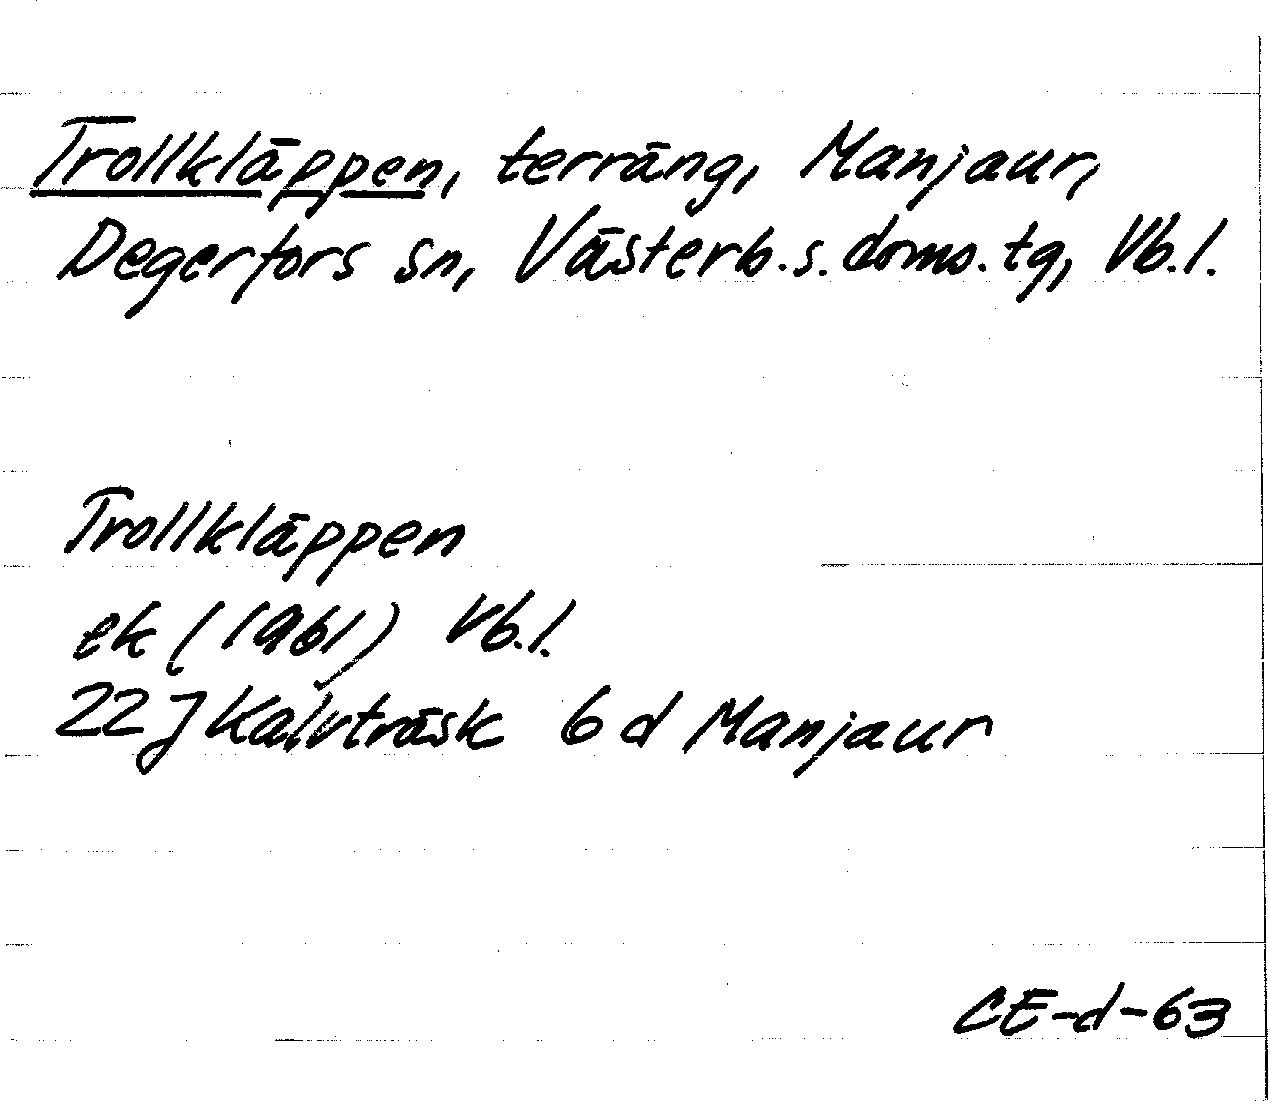 Trollkläppen, terräng, Manjaur,
Degerfors sn, Västerb. s. doms. tg, Vb. l.
Trollkläppen
ek (1961) Vb. l.
22 J Kalvträsk 6 d Manjaur
CE-d-63